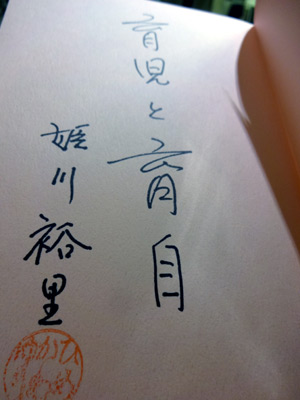 育児と育自
姫川裕里